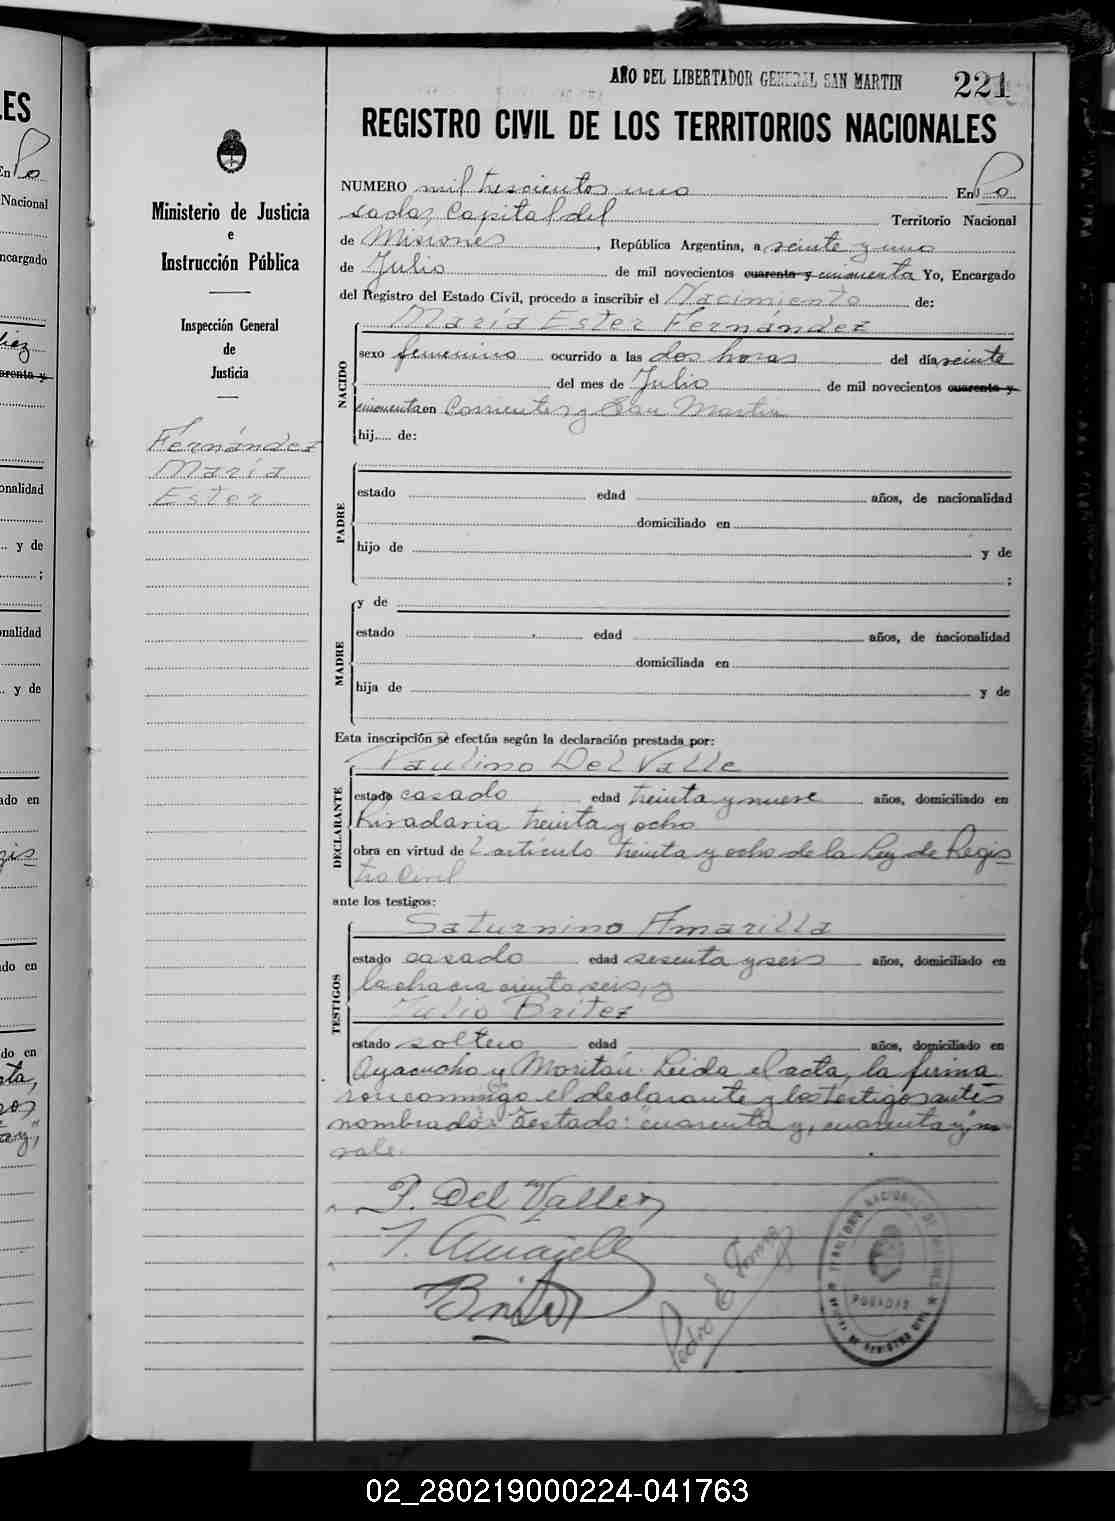 AÑO DEL LIBERTADOR GENERAL SAN MARTIN
221
REGISTRO CIVIL DE LOS TERRITORIOS NACIONALES
Ministerio de Justicia
e
Instrucción Pública
Inspección General
de
Justicia
Fernández
María
Ester
NUMERO mil trescientos uno En Po
sadas, Capital del Territorio Nacional
de Misiones, República Argentina, a veinte y uno
de Julio de mil novecientos cuarenta y cincuenta Yo, Encargado
del Registro del Estado Civil, procedo a inscribir el Nacimiento de:
María Ester Fernández
NACIDO
sexo femenino ocurrido a las dos horas del día veinte
del mes de Julio de mil novecientos cuarenta y
cincuenta en Corrientes y San Martín
hij..... de:
PADRE
estado edad años, de nacionalidad
domiciliado en
hijo de y de
;
MADRE
y de
estado edad años, de nacionalidad
domiciliada en
hija de y de
Esta inscripción se efectúa según la declaración prestada por:
Paulino Del Valle
DECLARANTE
estado casado edad treinta y nueve años, domiciliado en
Rivadavia treinta y ocho
obra en virtud de artículo treinta y ocho de la Ley de Regis
tro Civil
ante los testigos:
Saturnino Amarilla
TESTIGOS
estado casado edad sesenta y seis años, domiciliado en
la chacra ciento seis, y
Julio Britez
estado soltero edad años, domiciliado en
Ayacucho y Leida el acta, la firma
ron conmigo el declarante y los testigos antes
nombrados Testado: "cuarenta y, cuarenta y" no
vale.
P. Del Valle
Pedro E
POSADAS
LES
En Po
Nacional
encargado
onalidad
y de
;
onalidad
y de
ado en
do en
do en
02_280219000224-041763